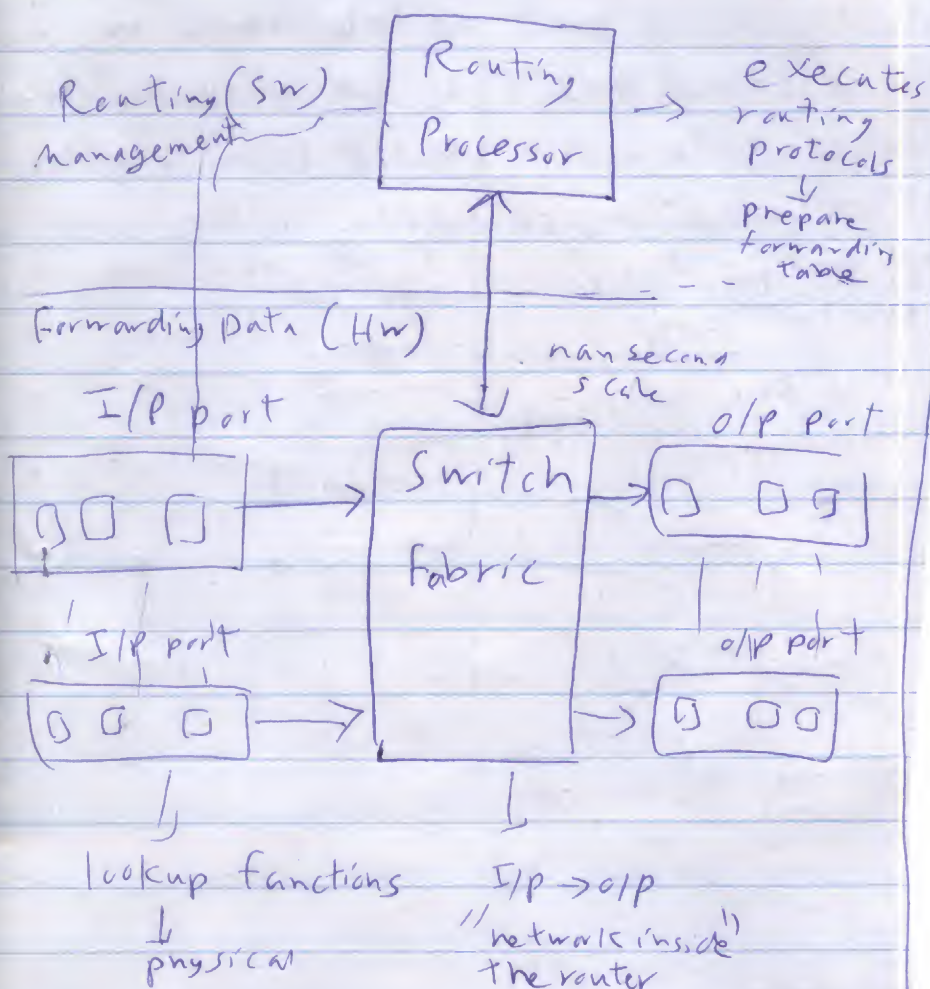 Routing (SW)
management
Routing
Processor
executes
routing
protocols
prepare
forwarding
table
Forwarding Data (HW)
nansecond
scale
I/P port
Switch
fabric
O/P port
I/P port
O/P port
lookup functions
physical
I/P → O/P
"network inside"
the router